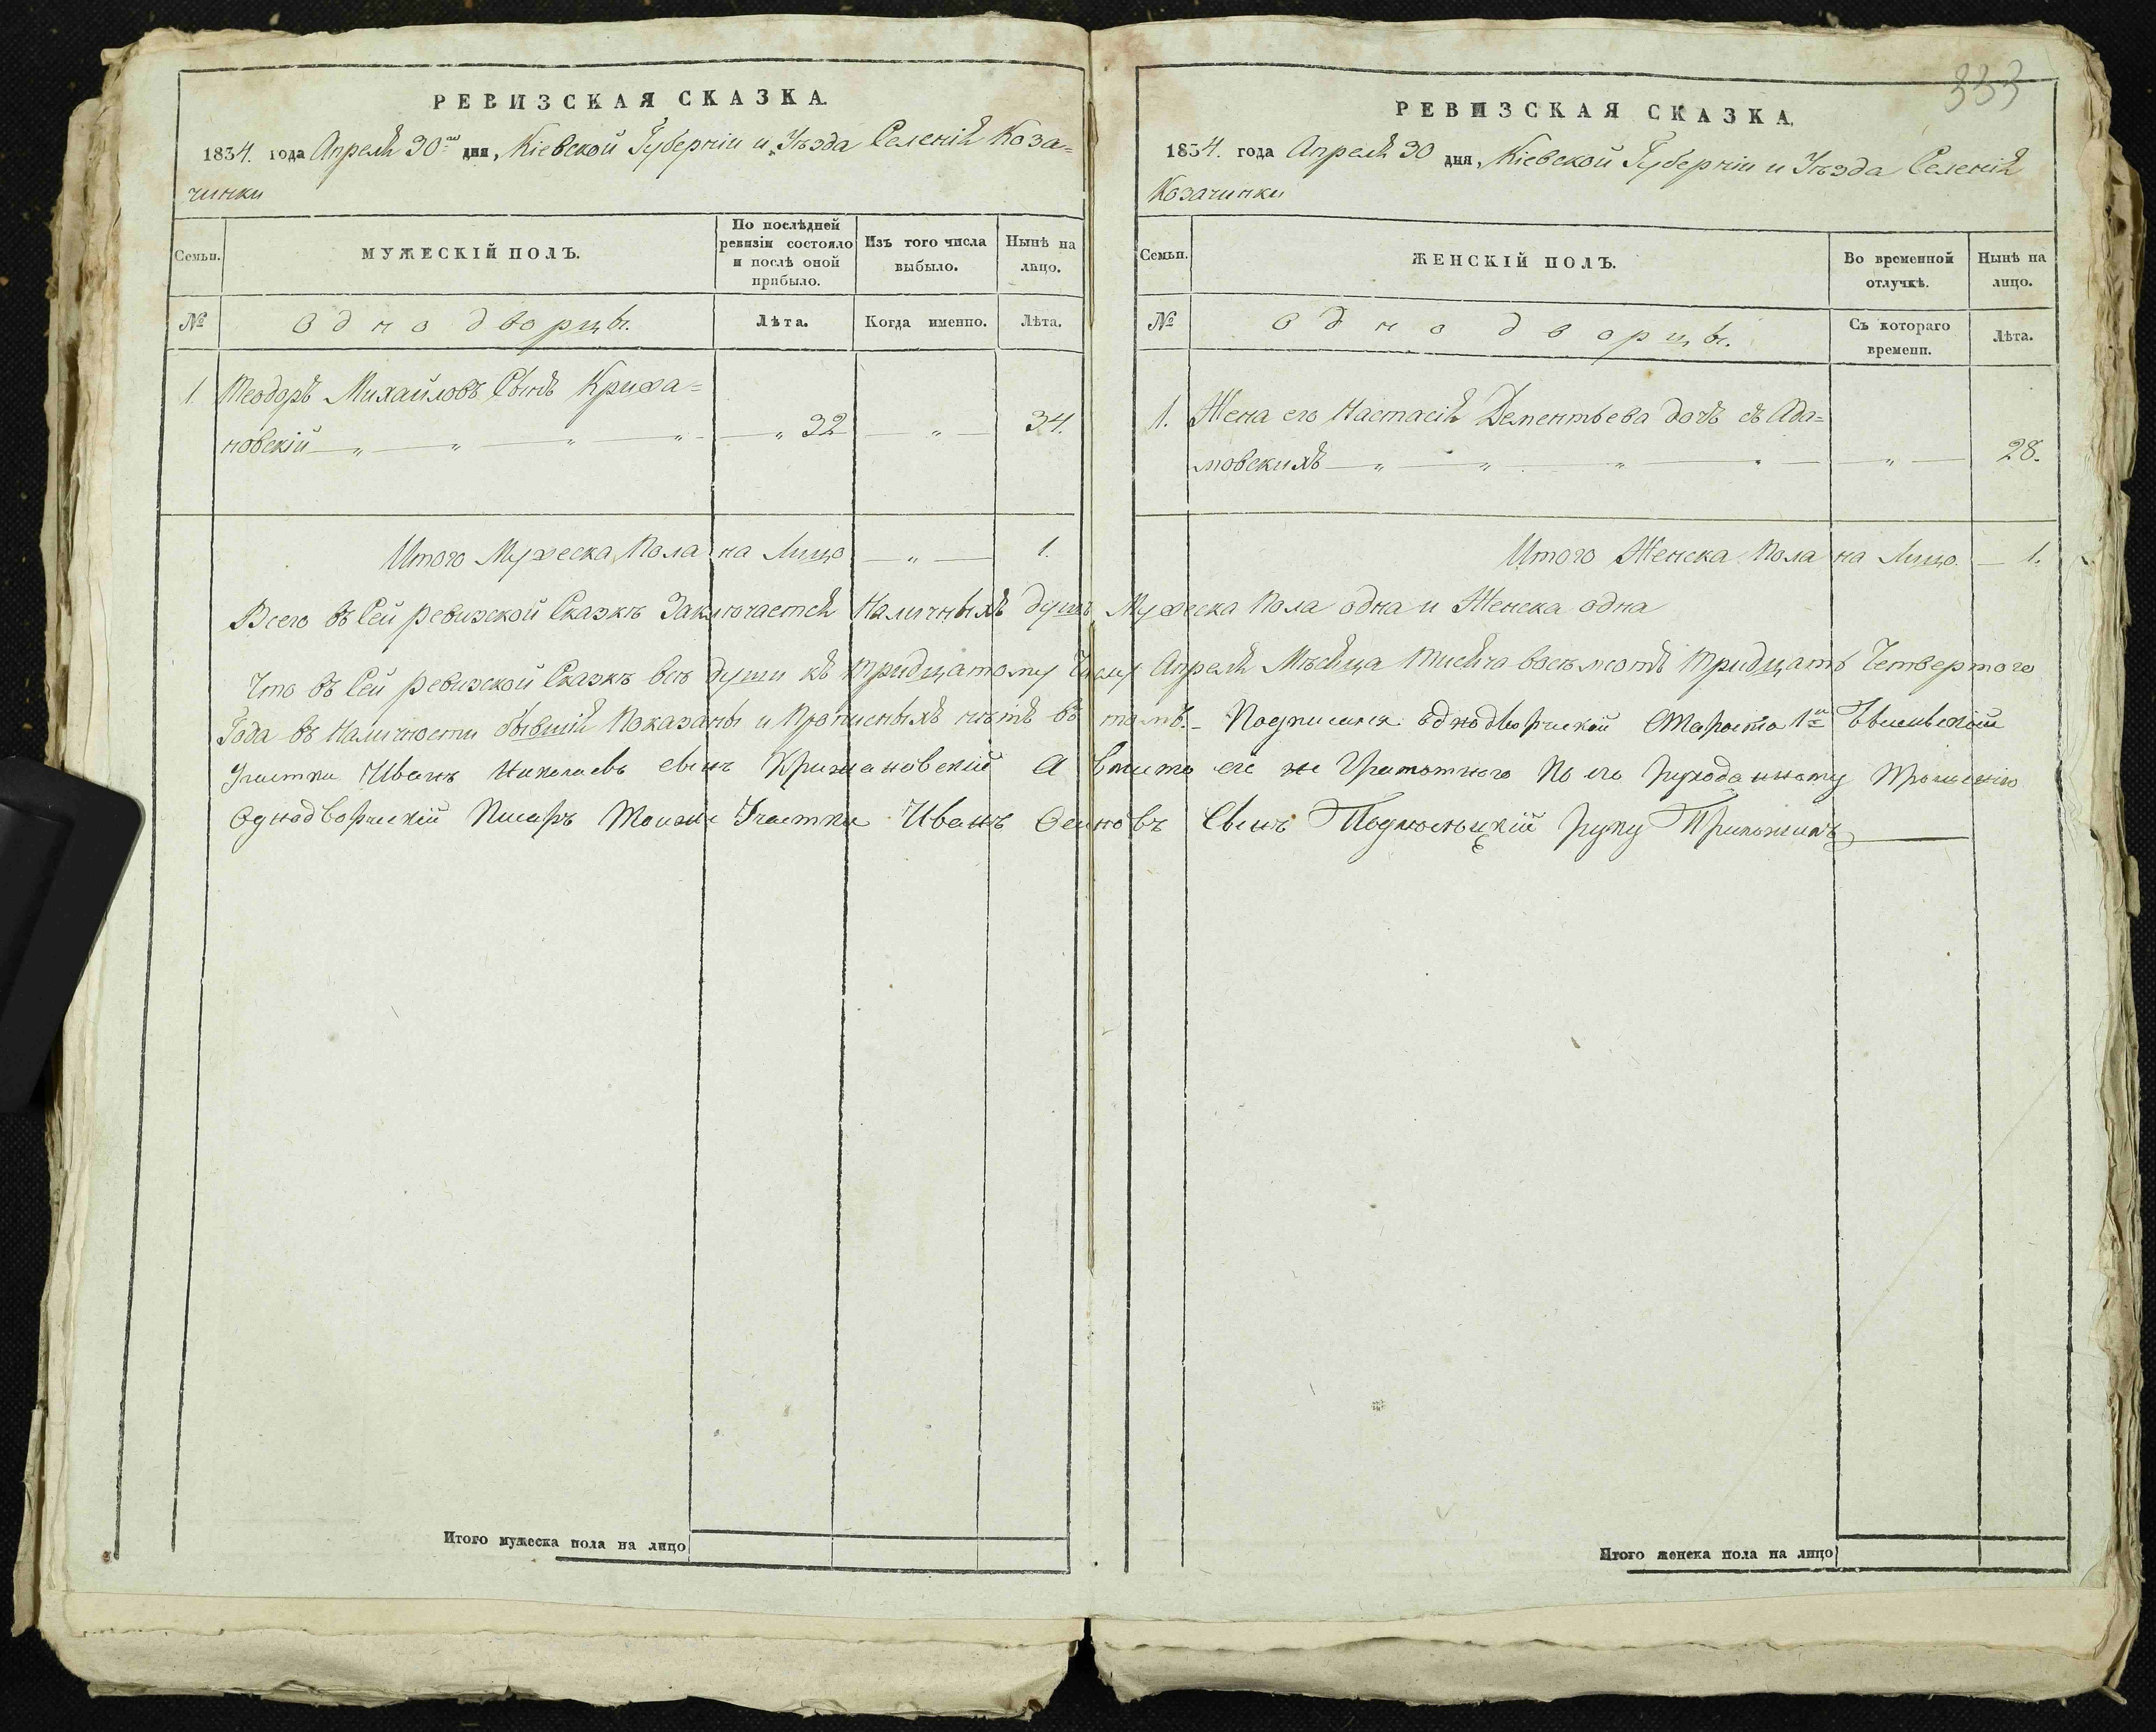 333
РЕВИЗСКАЯ СКАЗКА.
1834. года Апреля 30го дня, Кіевской Губерніи и Уѣзда Селенія Коза=
чинки
Семьи.
МУЖЕСКІЙ ПОЛЪ.
По послѣдней ревизіи состояло и послѣ оной прибыло.
Изъ того числа выбыло.
Нынѣ на лицо.
№
Однодворцы.
Лѣта.
Когда именно.
Лѣта.
1. Теодоръ Михайловъ Сынъ Крижа=
новскій — " — " — " — " 32 — " — 34.
Итого Мужеска Пола на Лицо — " — 1.
РЕВИЗСКАЯ СКАЗКА.
1834. года Апреля 30 дня, Кіевской Губерніи и Уѣзда Селенія
Козачинки
Семьи.
ЖЕНСКІЙ ПОЛЪ.
Во временной отлучкѣ.
Нынѣ на лицо.
№
Однодворцы.
Съ котораго времени.
Лѣта.
1. Жена его Настасія Дементьева дочь съ Ада=
мовскихъ — " — " — " — " — " — 28.
Итого Женска Пола на Лицо. — 1.
Всего въ Сей ревизской Сказкѣ Заключается Наличныхъ душъ Мужеска Пола одна и Женска одна
Что въ Сей ревизской Сказкѣ всѣ души къ тридцатому Числу Апреля Мѣсяца тисяча восъмсотъ тридцать Четвертого
Года въ Наличности бывшія Показаны и Прописныхъ нѣтъ въ томъ. – Подписался однодворческой Староста 1го
Участка Иванъ Николаевъ сынъ Крижановскій А вмѣсто его не Грамотного По его рукоданному Прошенію
Однодворческій Писаръ Тоиже Участка Иванъ Сынъ руку Приложилъ
Итого мужеска пола на лицо
Итого женска пола на лицо